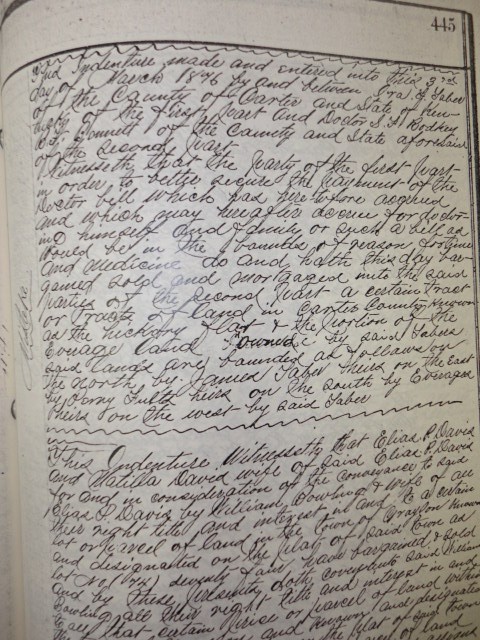 445
This Indenture made and entered into this 3rd
day of March 1876 by and between Ira G Taber
of the County of Carter and State of Ken-
tucky of the first part and Doctor S. H. Rodney
of the County and State aforesaid
of the second part
Witnesseth that the party of the first part
in order to better secure the payment of the
Doctor bill which has heretofore accrued
and which may hereafter accrue for doctor-
ing himself and family or such a bill as
would be in the bounds of reason for time
and medicine do and hath this day bar-
gained sold and mortgaged unto the said
parties of the second part a certain tract
or tracts of land in Carter County known
as the hickory flat & the portion of the
land owned by said Tabers
said lands are bounded as follows on
the north by James Taber heirs on the East
by heirs on the South by
heirs on the west by said Taber
This Indenture Witnesseth that Elias P. David
and Matilla David wife of said Elias P. David
for and in consideration of the conveyance to said
Elias P. David by William Bowling & wife of all
their right title and interest in and to a certain
lot or parcel of land in the town of Grayson known
and designated on the plat of said town as
lot No (74) seventy four have bargained & sold
and by these presents doth covenants said William
Bowling all their right title and interest in and
to all that certain piece or parcel of land within
known and designated
the plat of said town
land